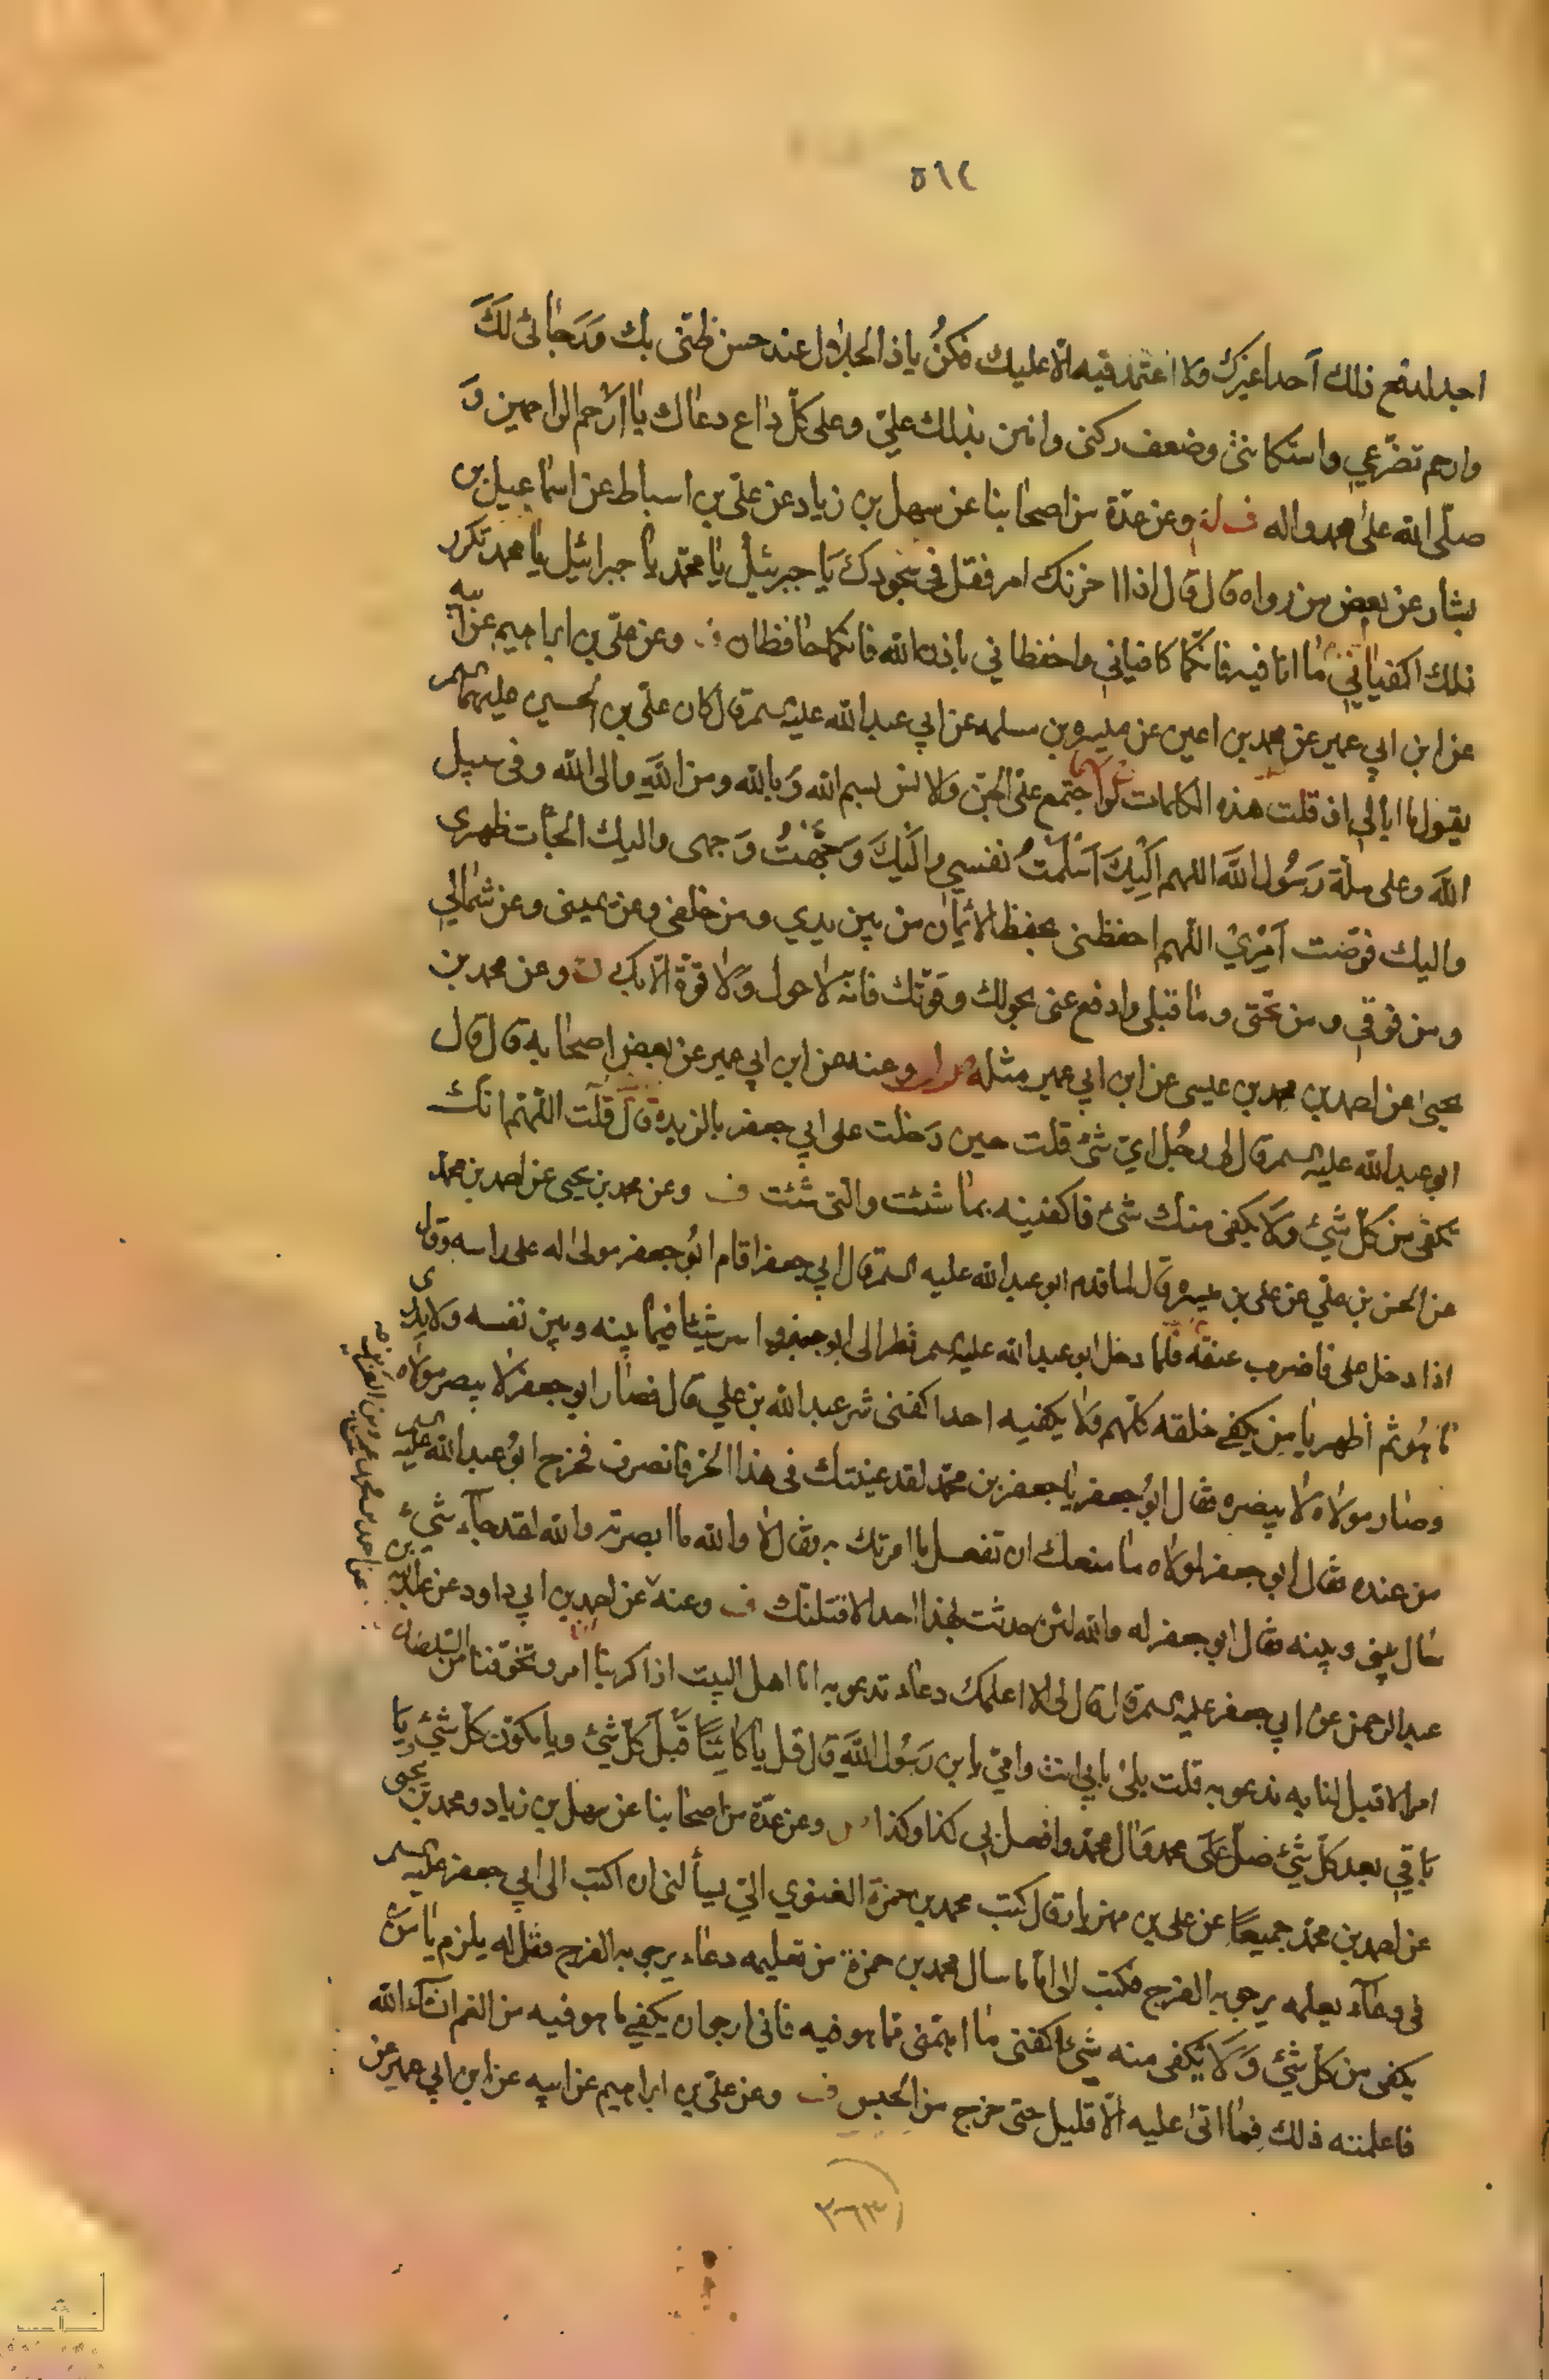 ٥٦٤
اجد لدفع ذلك أحدا غيرك ولا اعتمد فيه الّا عليك فكنُ ياذا الجلال عند حسن ظنّى بك وَرَجائى لَكَ
وارحم تضرّعي واستكانتى وضعف ركنى وامنن بذلك عليّ وعلى كلّ داع دعاك يا أرحم الراحمين وَ
صلّى الله على محمد واله وعن عدّة من اصحابنا عن سهل بن زياد عن علىّ بن اسباط عن اسماعيل بن
بشار عن بعض من رواه قال قال اذا احزنك امر فقل فى سجودك يَا جبرئيل يا محمّد يا جبرائيل يا محمد تكرر
ذلك اكفيانيِ ما انا فيه فانكما كافياني واحفظاني باذن الله فانكما حافظان ف وعن علىّ بن ابراهيم عن ابيه
عن ابن ابي عمير عن محمد بن اعين عن بن مسلمه عن ابي عبد الله عليه السم قال كان علىّ بن الحسين عليهما السم
يقول ما ابالي اذ قلت هذه الكلمات لو اجتمع علىّ الجنّ والانس بسم الله وَبالله ومن اللّهِ والى الله وفى سبيل
اللهَ وعلى ملّة رَسُول اللَّه اللهم اِلَيْكَ اَسْلَمْتُ نفسي واِلَيْكَ وَجَّهْتُ وَجهى واليك الجأت ظهرى
واليك فوّضت اَمْرِيْ اللّهم احفظنى بحفظ الائيمان من بين يدي ومن خلفى وعن يمينى وعن شمالي
ومن فوقي ومن تحتى وما قبلى وادفع عنى بحولك وقوّتك فانه لا حول وَلا قوّة الّا بك ف وعن محمد بن
يحيىٰ عن احمد بن محمد بن عيسى عن ابن ابي عمير مثله وعنه عن ابن ابي عمير عن بعض اصحابه قال قال
ابو عبد الله عليه السم قال لى رجُل اىّ شئ قلت حين دَخلت على ابي جعفر بالربذة قال قلت اللّهمّ انّك
تكفى من كلّ شئ وَلا يكفى منك شئ فاكفنيه بما شئت والتى شئت ف وعن محمد بن يحيى عن احمد بن محمّد
عن الحسن بن علي عن على بن ميسره قال لما قدم ابو عبد الله عليه السم قال ابي جعفر اقام ابُو جعفر مولىٰ له على راسه وقال
اذا دخل على فاضرب عنقه فلما دخل ابو عبد الله عليه السم نظر الى ابو جعفر واسر شيئا فيما بينه وبين نفسه ولا يدرى
ما هُو ثم اظهر يا من يكفى خلقه كلّهم وَلا يكفيه احد اكفنى شر عبد الله بن علي قال فصار ابو جعفر لا يبصر مولاه
وصار مولاه لا يبصره فقال ابُو جعفر يا جعفر بن محمّد لقد عنيتك فى هذا الحر فانصرف فخرج ابُو عبد الله عليه السم
من عنده فقال ابو جعفر لمولاه ما منعك ان تفعل ما امرتك به فقال لا والله ما ابصرته والله لقد جآء شئ
حال بينى وبينه فقال ابو جعفر له والله لئن حدثت بهذا احدا لاقتلنّك ف وعنه عن احمد بن ابي داود عن عبد الله بن
عبد الرحمن عن ابي جعفر عليه السم قال قال لى الا اعلمك دعاء تدعو به انا اهل البيت اذا كربنا امر وتخوّفنا من السّلطان
امرا لا قبل لنا به ندعو به قلت بلى بابي انت وامّي يا بن رَسُول اللَّه قال قل يا كائِناً قبلَ كلّ شئ ويا مكوّن كلّ شئ ويَا
باقي بعد كلّ شئ صلّ على محمد وآل محمّد وافعل بي كذا وكذا وعن عدّة من اصحابنا عن سهل بن زياد ومحمد بن يحيى
عن احمد بن محمّد جميعًا عن على بن مهزيار قال كتب محمد بن حمزة الغنوي الىّ يسألنى ان اكتب الى ابي جعفر عليه السم
فى دعآء يعلمه يرجو به الفرج فكتب الى امّا ما سال محمد بن حمزة من تعليمه دعاء يرجو به الفرج فقل له يلزم يا من
يكفى من كلّ شئ وَلَا يُكفى منه شئ اكفنى ما اهمّنى ممّا هو فيه فانى ارجو ان يكفى ما هو فيه من الغم ان شآء الله
فاعلمته ذلك فما اتىٰ عليه الّا قليل حتى خرج من الحبس ف وعن علىّ بن ابراهيم عن ابيه عن ابن ابي عمير عن
٣٦٣